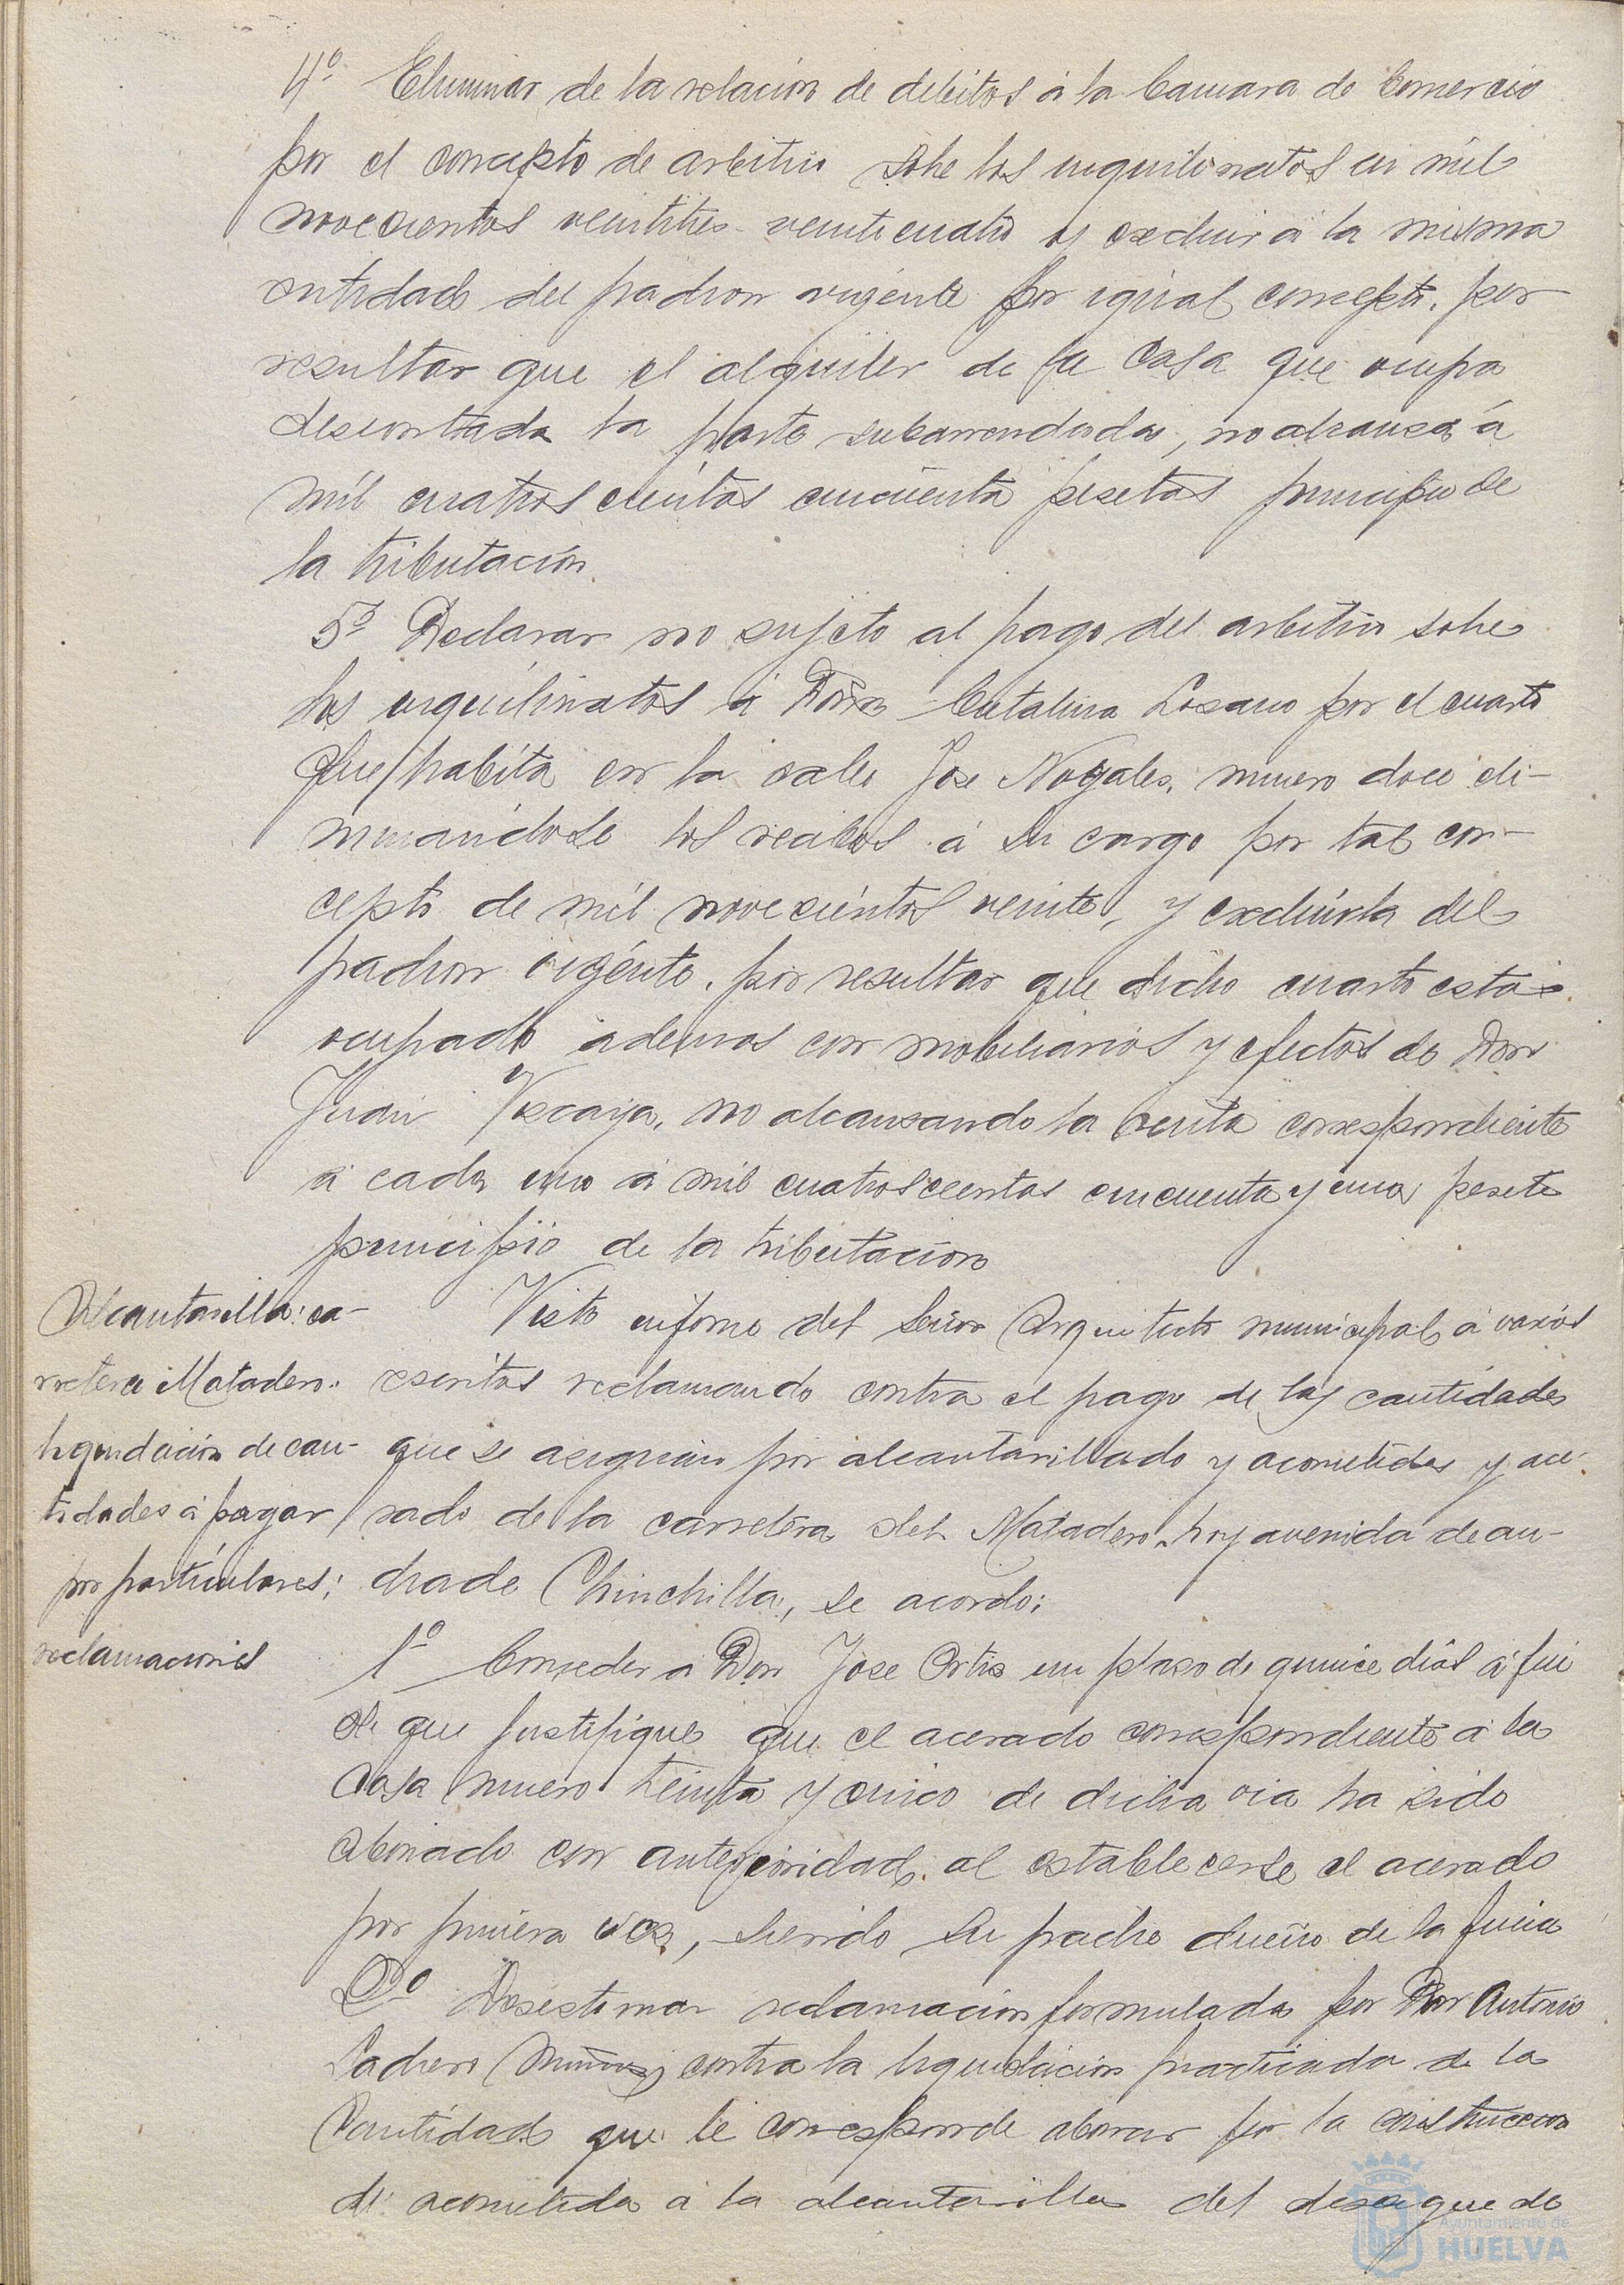 4º Eliminar de la relación de debitos á la Camara de Comercio
por el concepto de arbitrio sobre los inquilinatos en mil
novecientos veintitres-veinticuatro y excluir á la misma
entidad del padron vigente por igual concepto, por
resultar que el alquiler de la casa que ocupa
descontada la parte subarrendada, no alcanza á
mil cuatroscientos cincuenta pesetas principio de
la tributación.
5º Declarar no sujeto al pago del arbitrio sobre
los inquilinatos á Doña Catalina Lozano por el cuarto
que habita en la calle Jose Nogales, numero doce eli-
minandose los recibos á su cargo por tal con-
cepto de mil novecientos veinte, y excluirla del
padron vigente, por resultar que dicho cuarto está
ocupado ademas con mobiliarios y efectos de Don
Juan Viscaya, no alcansando la renta correspondiente
á cada uno á mil cuatroscientas cincuenta y una peseta
principio de la tributación
Alcantarilla: ca-
rretera Matadero:
liquidación de can-
tidades á pagar
por particulares;
reclamaciones
Visto informe del Señor Arquitecto municipal á varios
escritos reclamando contra el pago de las cantidades
que se asignan por alcantarillado y acometidas y ace-
rado de la carretera del Matadero, hoy avenida de An-
drade Chinchilla, se acordo:
1º Conceder á Don Jose Ortiz un plazo de quince dias á fin
de que justifique que el acerado correspondiente á la
casa numero treinta y cinco de dicha via ha sido
abonado con anterioridad, al establecerse el acerado
por primera vez, siendo su padre dueño de la finca
2º Desestimar reclamación formulada por Don Antonio
Ladrero Muñoz, contra la liquidación practicada de la
Cantidad que le corresponde abonar por la construccion
de acometida á la alcantarilla del desague de
Ayuntamiento de
HUELVA